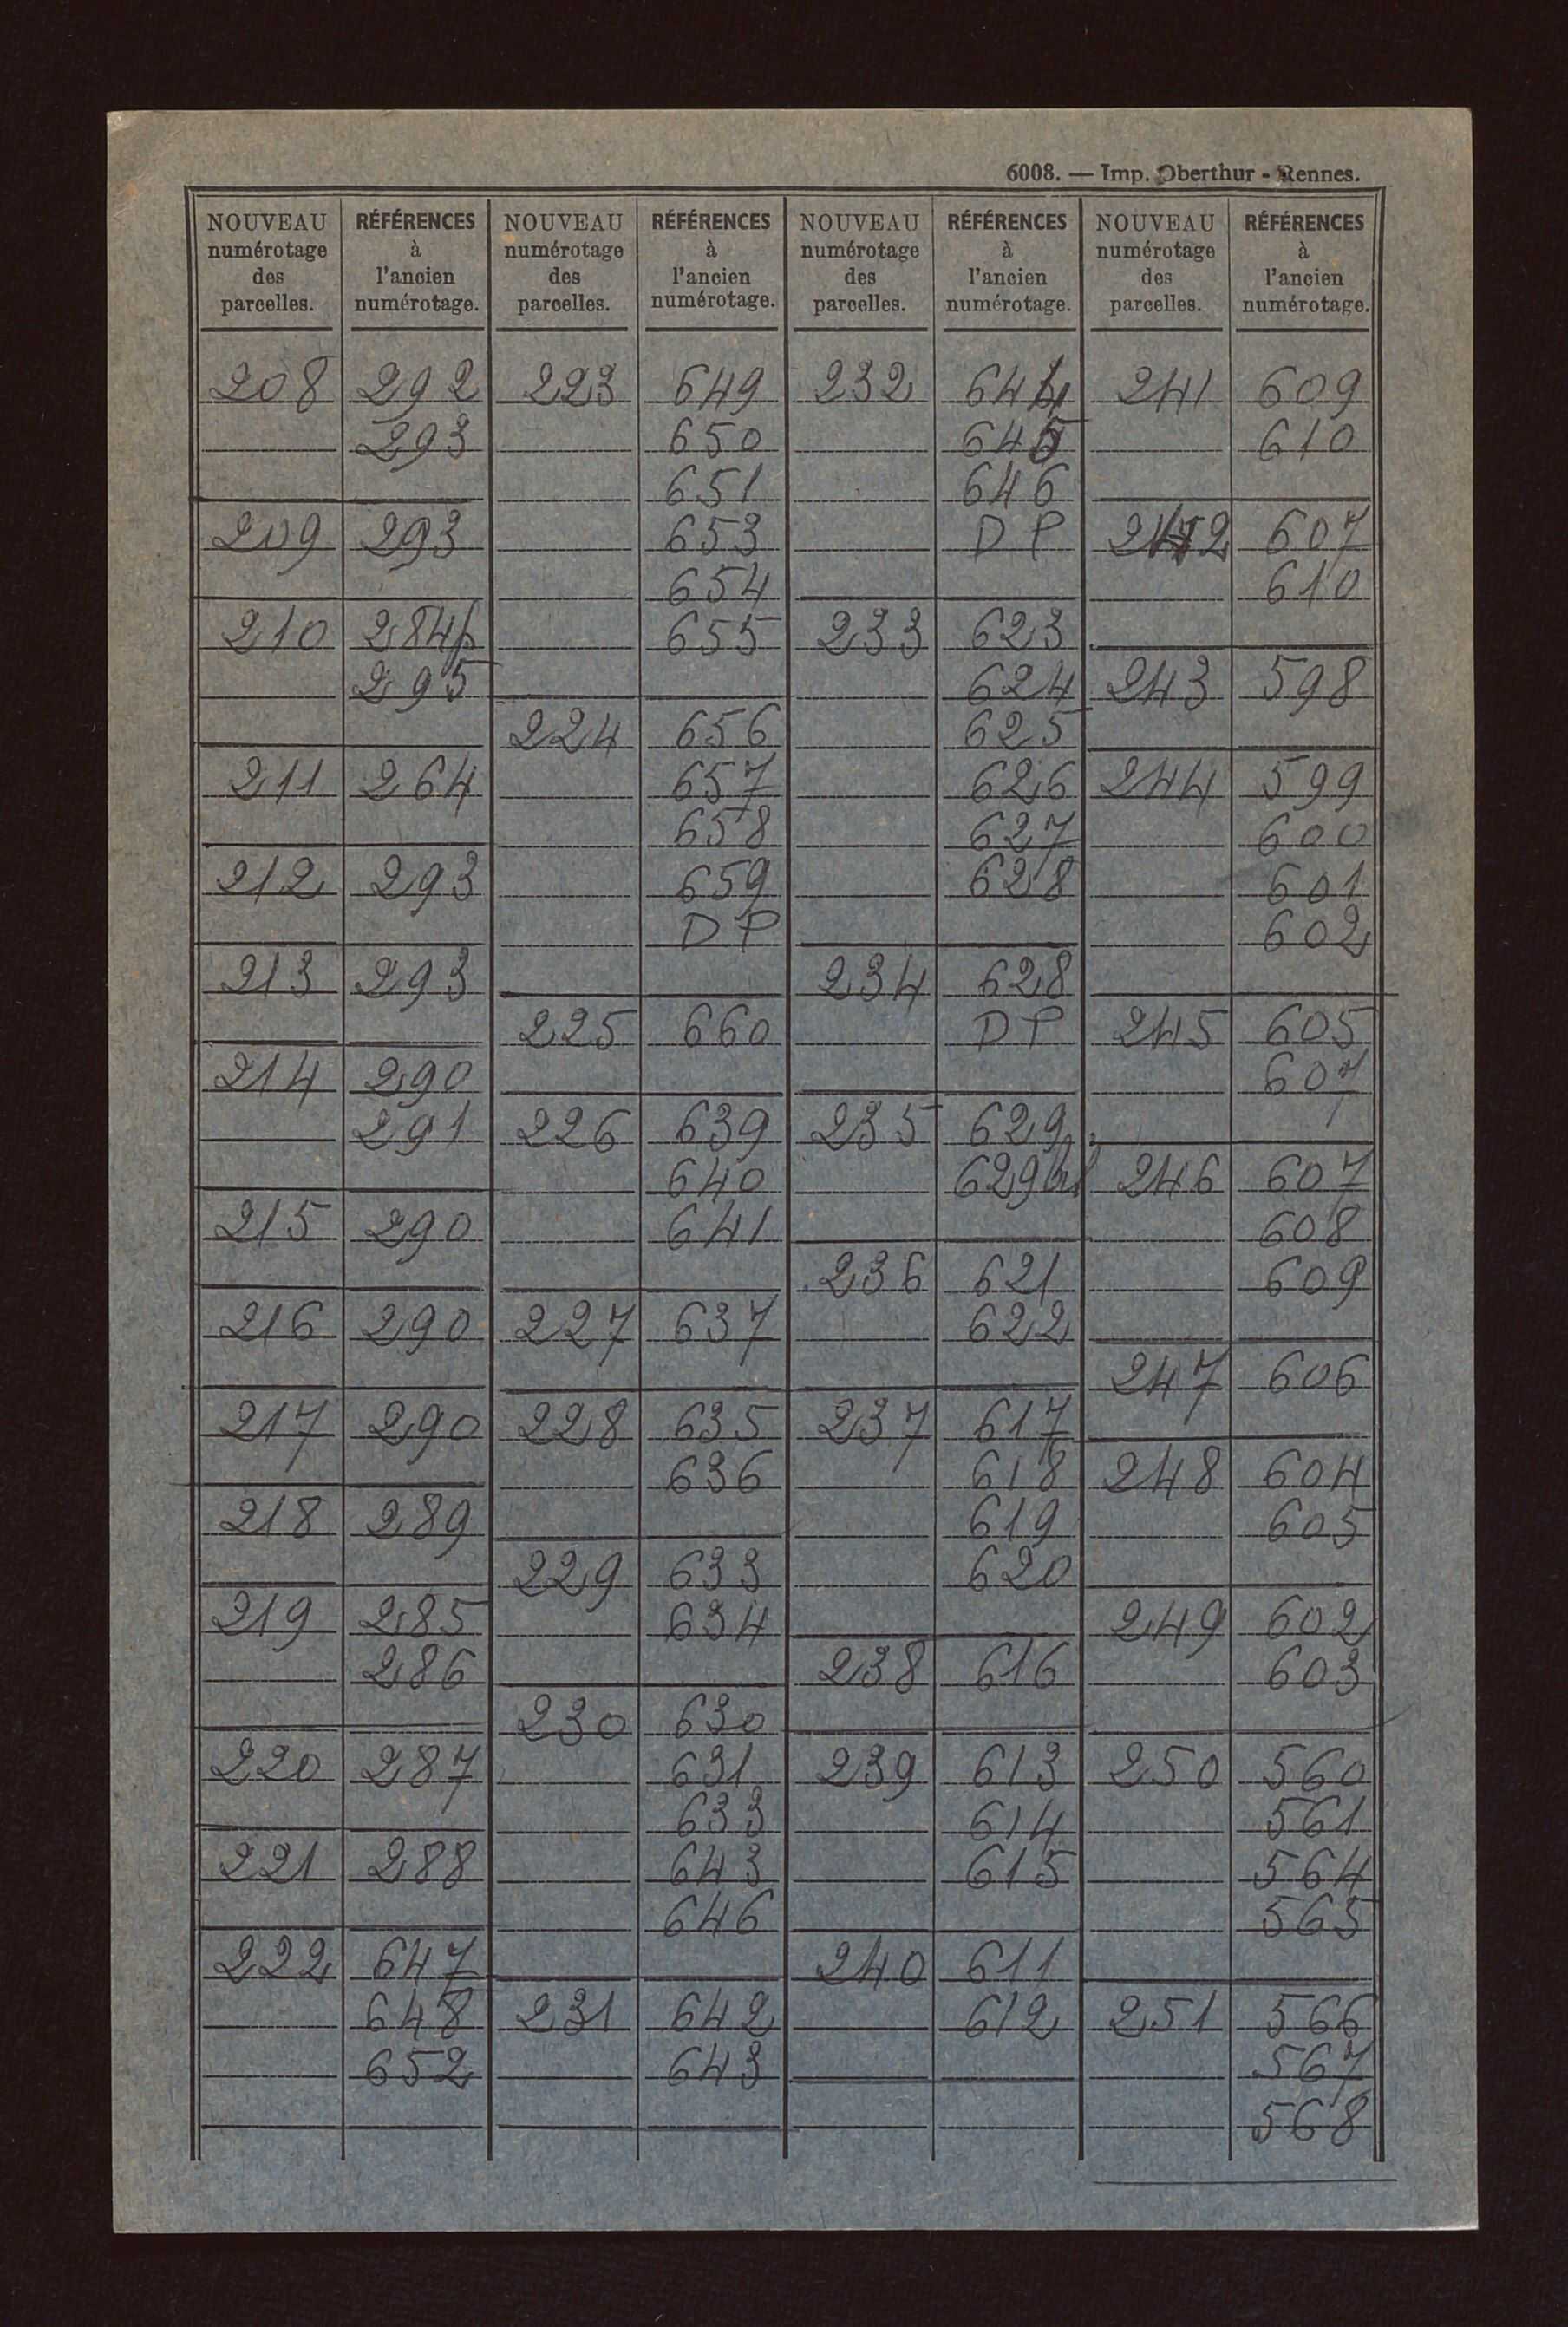 6008. — Imp. Oberthur - Rennes.
NOUVEAU numérotage des parcelles. RÉFÉRENCES à l'ancien numérotage. NOUVEAU numérotage des parcelles. RÉFÉRENCES à l'ancien numérotage. NOUVEAU numérotage des parcelles. RÉFÉRENCES à l'ancien numérotage. NOUVEAU numérotage des parcelles. RÉFÉRENCES à l'ancien numérotage.
208 292 223 649 232 644 241 609
293 650 645 610
651 646
209 293 653 DP 242 607
654 610
210 284p 655 233 623
295 624 243 598
224 656 625
211 264 657 626 244 599
658 627 600
212 293 659 628 601
DP 602
213 293 234 628
225 660 DP 245 605
214 290 607
291 226 639 235 629
640 629bis 246 607
215 290 641 608
236 621 609
216 290 227 637 622
247 606
217 290 228 635 237 617
636 618 248 604
218 289 619 605
229 633 620
219 285 634 249 602
286 238 616 603
230 630
220 287 631 239 613 250 560
633 614 561
221 288 643 615 564
646 565
222 647 240 611
648 231 642 612 251 566
652 643 567
568